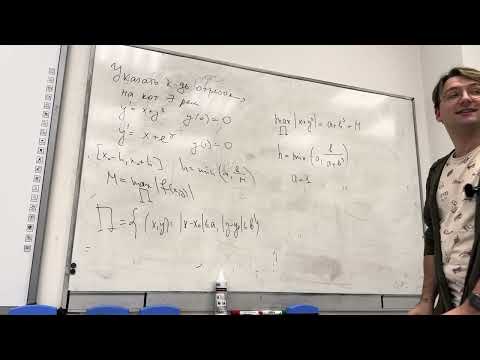 Указать к-нь отрезок
на кот ∃ реш
y' = x + y³   y(0) = 0
y' = x + eʸ   y(1) = 0
[x₀ - h, x₀ + h]   h = min(a, b/M)
M = max |f(x,y)|
∏
∏ = { (x,y): |x - x₀| ≤ a, |y - y₀| ≤ b }
max |x + y³| = a + b³ = M
∏
h = min(a, b/(a + b³))
a = 1